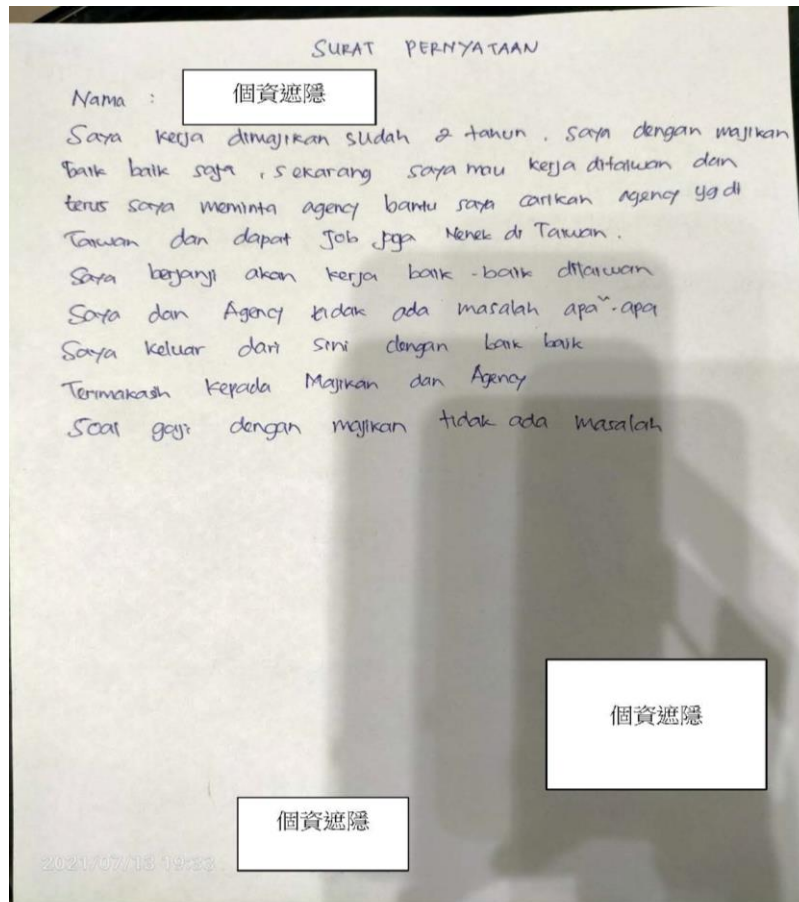 SURAT PERNYATAAN
Nama : 個資遮隱
Saya kerja dimajikan sudah 2 tahun. saya dengan majikan
baik baik saja, sekarang saya mau kerja ditaiwan dan
terus saya meminta agency bantu saya carikan agency yg di
Taiwan dan dapat Job jaga Nenek di Taiwan.
Saya berjanji akan kerja baik-baik ditaiwan
Saya dan Agency tidak ada masalah apa-apa
Saya keluar dari sini dengan baik baik
Terimakasih kepada Majikan dan Agency
Soal gaji dengan majikan tidak ada masalah
個資遮隱
個資遮隱
2021/07/13 19:33